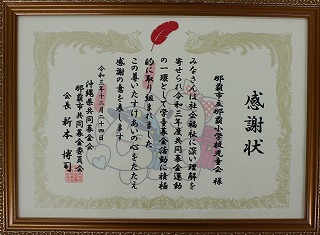 感謝状
那覇市立那覇小学校児童会 様
みなさんは社会福祉に深い理解を
寄せられ令和三年度共同募金運動
の一環として学童募金活動に積極
的に取り組まれました
この尊いたすけあいの心をたたえ
感謝の意を表します
令和三年十二月二十四日
沖縄県共同募金会
那覇市共同募金委員会
会長 新本 博司